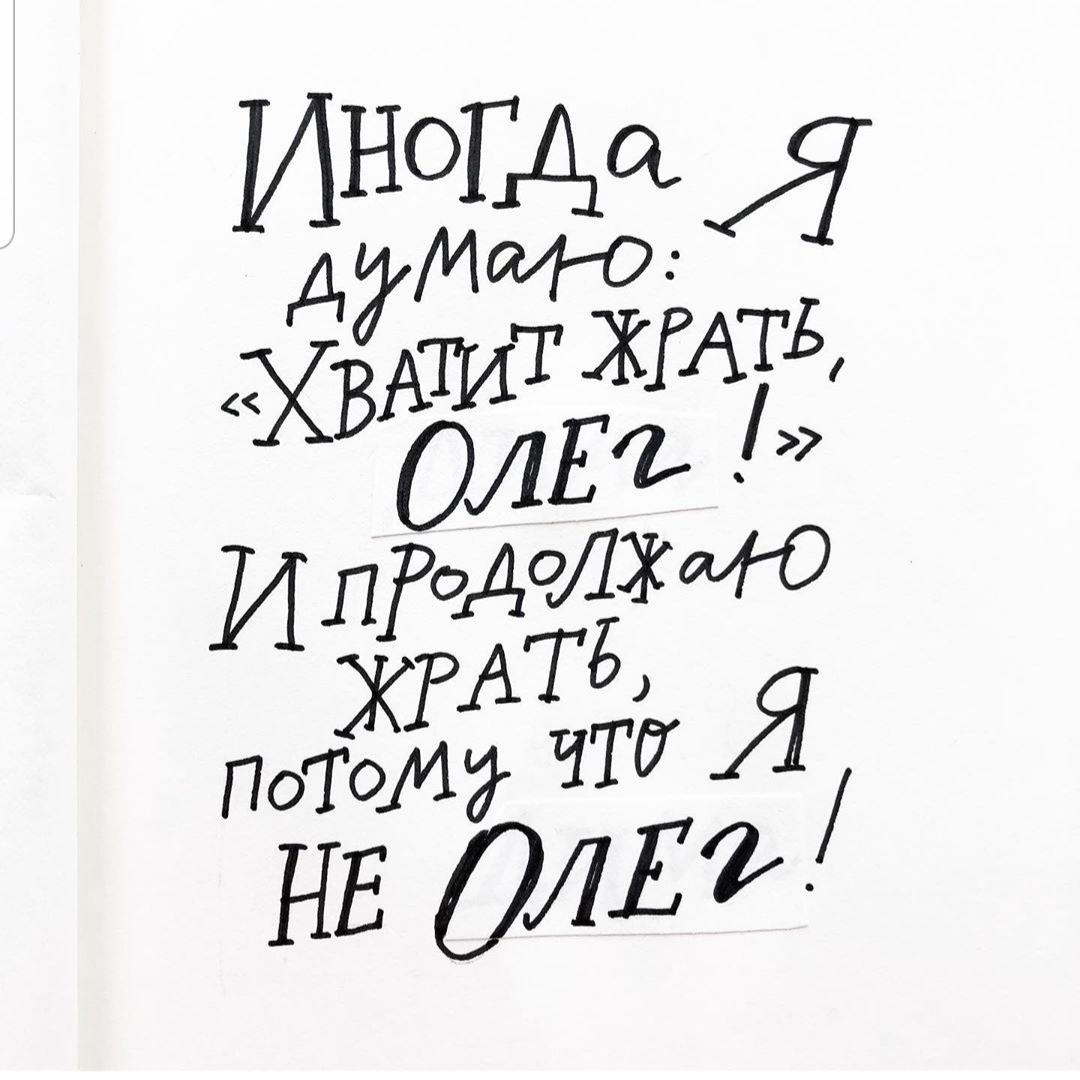 Иногда Я
думаю:
«ХВАТИТ ЖРАТЬ,
ОЛЕг!»
И продолжаю
ЖРАТЬ,
потому что Я
НЕ ОЛЕг!